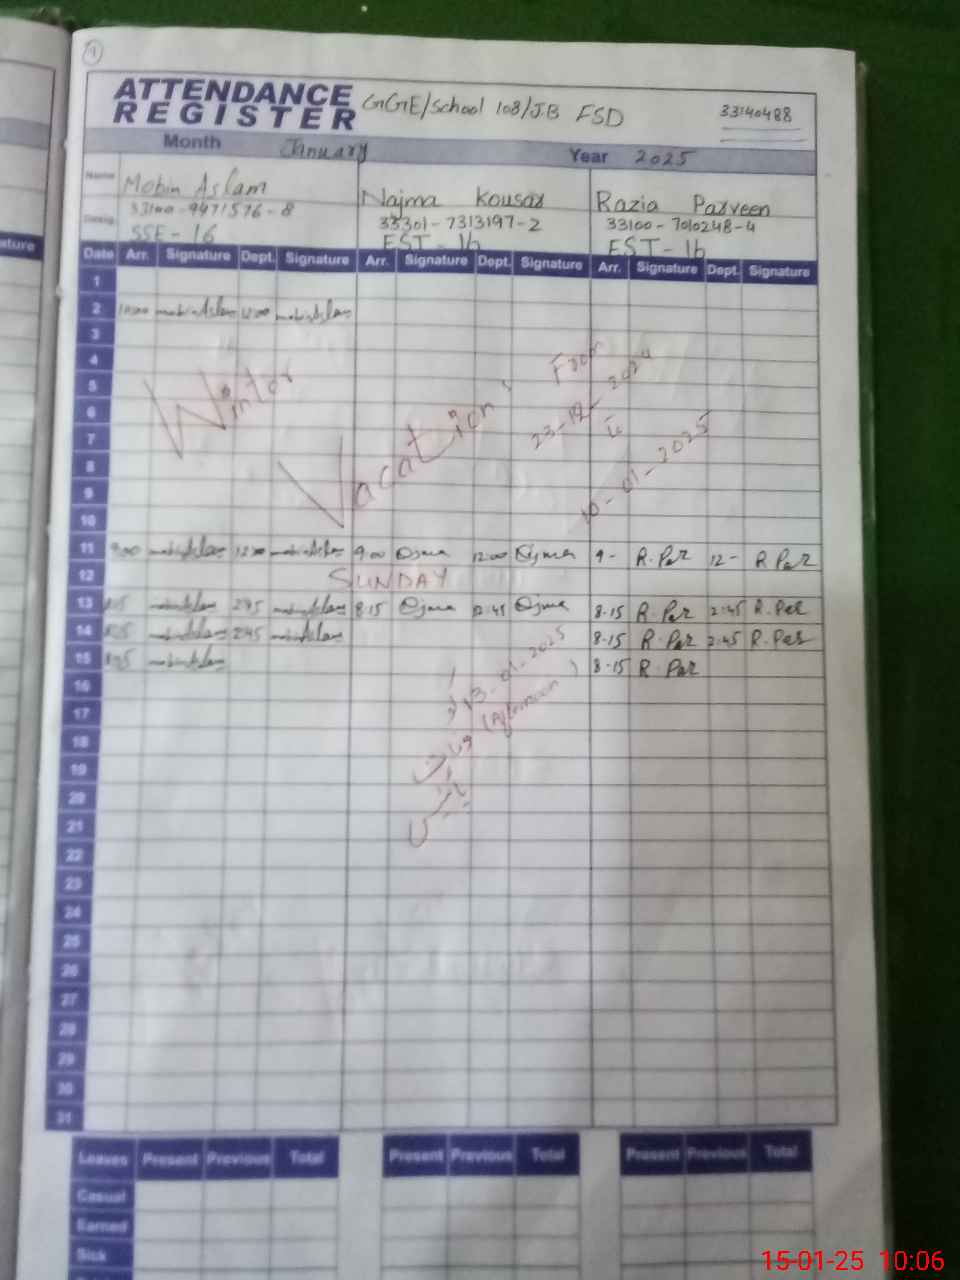 ATTENDANCE
REGISTER
GGE/School 108/J.B FSD
33140488
Month January Year 2025
Name Mobin Aslam Najma Kousar Razia Parveen
33100-9471576-8 33301-7313197-2 33100-7010248-4
SSE-16 EST-16 EST-16
Date Arr. Signature Dept. Signature Arr. Signature Dept. Signature Arr. Signature Dept. Signature
1
2
3
4
5
6
7
8
9
10
Winter Vacation's From
23-12-2024
to
10-01-2025
11 9:00 12:00 9:00 12:00 9- R.Par 12- R Par
12 SUNDAY
13 2:45 8:15 8-15 R.Par 2:45 R.Par
14 2:45 8-15 R.Par 2:45 R.Par
15 8-15 R.Par
13-01-2025
(Afternoon)
وفات
پائیں
16
17
18
19
20
21
22
23
24
25
26
27
28
29
30
31
Leaves Present Previous Total Present Previous Total Present Previous Total
Casual
Earned
Sick
15-01-25 10:06